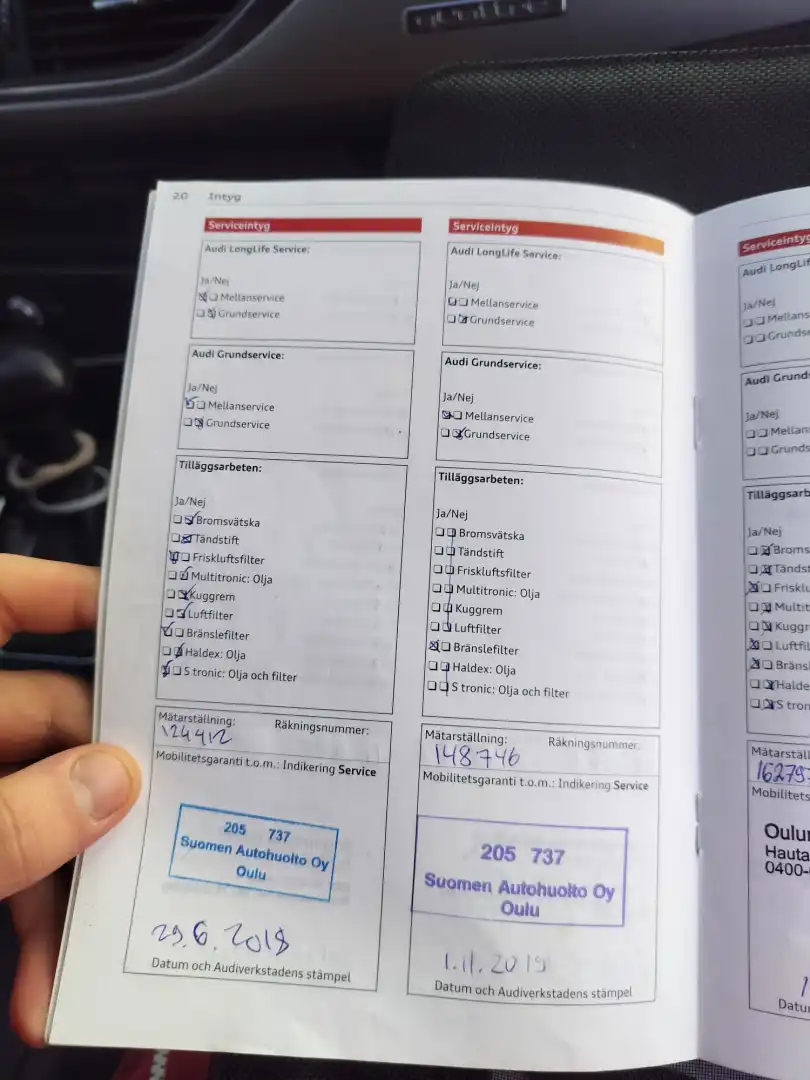 quattro
20 Intyg
Serviceintyg
Audi LongLife Service:
Ja/Nej
Mellanservice
Grundservice
Audi Grundservice:
Ja/Nej
Mellanservice
Grundservice
Tilläggsarbeten:
Ja/Nej
Bromsvätska
Tändstift
Friskluftsfilter
Multitronic: Olja
Kuggrem
Luftfilter
Bränslefilter
Haldex: Olja
S tronic: Olja och filter
Mätarställning: Räkningsnummer:
124412
Mobilitetsgaranti t.o.m.: Indikering Service
205 737
Suomen Autohuolto Oy
Oulu
29.6.2018
Datum och Audiverkstadens stämpel
Serviceintyg
Audi LongLife Service:
Ja/Nej
Mellanservice
Grundservice
Audi Grundservice:
Ja/Nej
Mellanservice
Grundservice
Tilläggsarbeten:
Ja/Nej
Bromsvätska
Tändstift
Friskluftsfilter
Multitronic: Olja
Kuggrem
Luftfilter
Bränslefilter
Haldex: Olja
S tronic: Olja och filter
Mätarställning: Räkningsnummer:
148746
Mobilitetsgaranti t.o.m.: Indikering Service
205 737
Suomen Autohuolto Oy
Oulu
1.11.2019
Datum och Audiverkstadens stämpel
Serviceintyg
Audi LongLif
Ja/Nej
Mellans
Grunds
Audi Grund
Ja/Nej
Mellan
Grunds
Tilläggsarb
Ja/Nej
Broms
Tändst
Frisklu
Multit
Kuggr
Luftfil
Bräns
Halde
S tron
Mätarställ
16279
Mobilitets
Oulu
Hauta
0400-
Datu